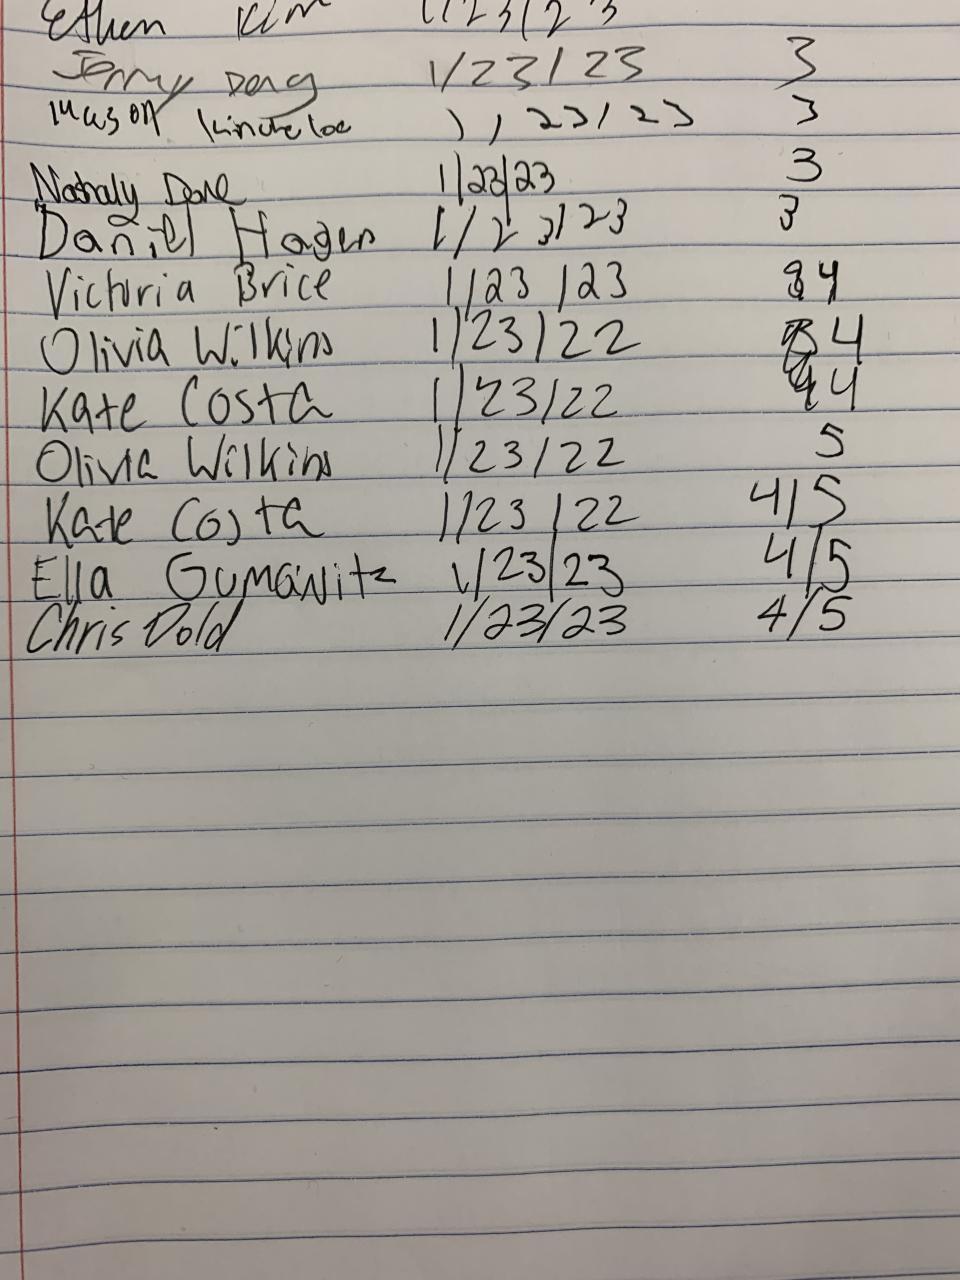 Ethen Kim 1/23/23
Jerry Deng 1/23/23 3
Mason Kincheloe 1/23/23 3
Nathaly Dane 1/23/23 3
Daniel Hagen 1/23/23 3
Victoria Brice 1/23/23 4
Olivia Wilkins 1/23/22 4
Kate Costa 1/23/22 4
Olivia Wilkins 1/23/22 5
Kate Costa 1/23/22 4/5
Ella Gumawitz 1/23/23 4/5
Chris Dold 1/23/23 4/5